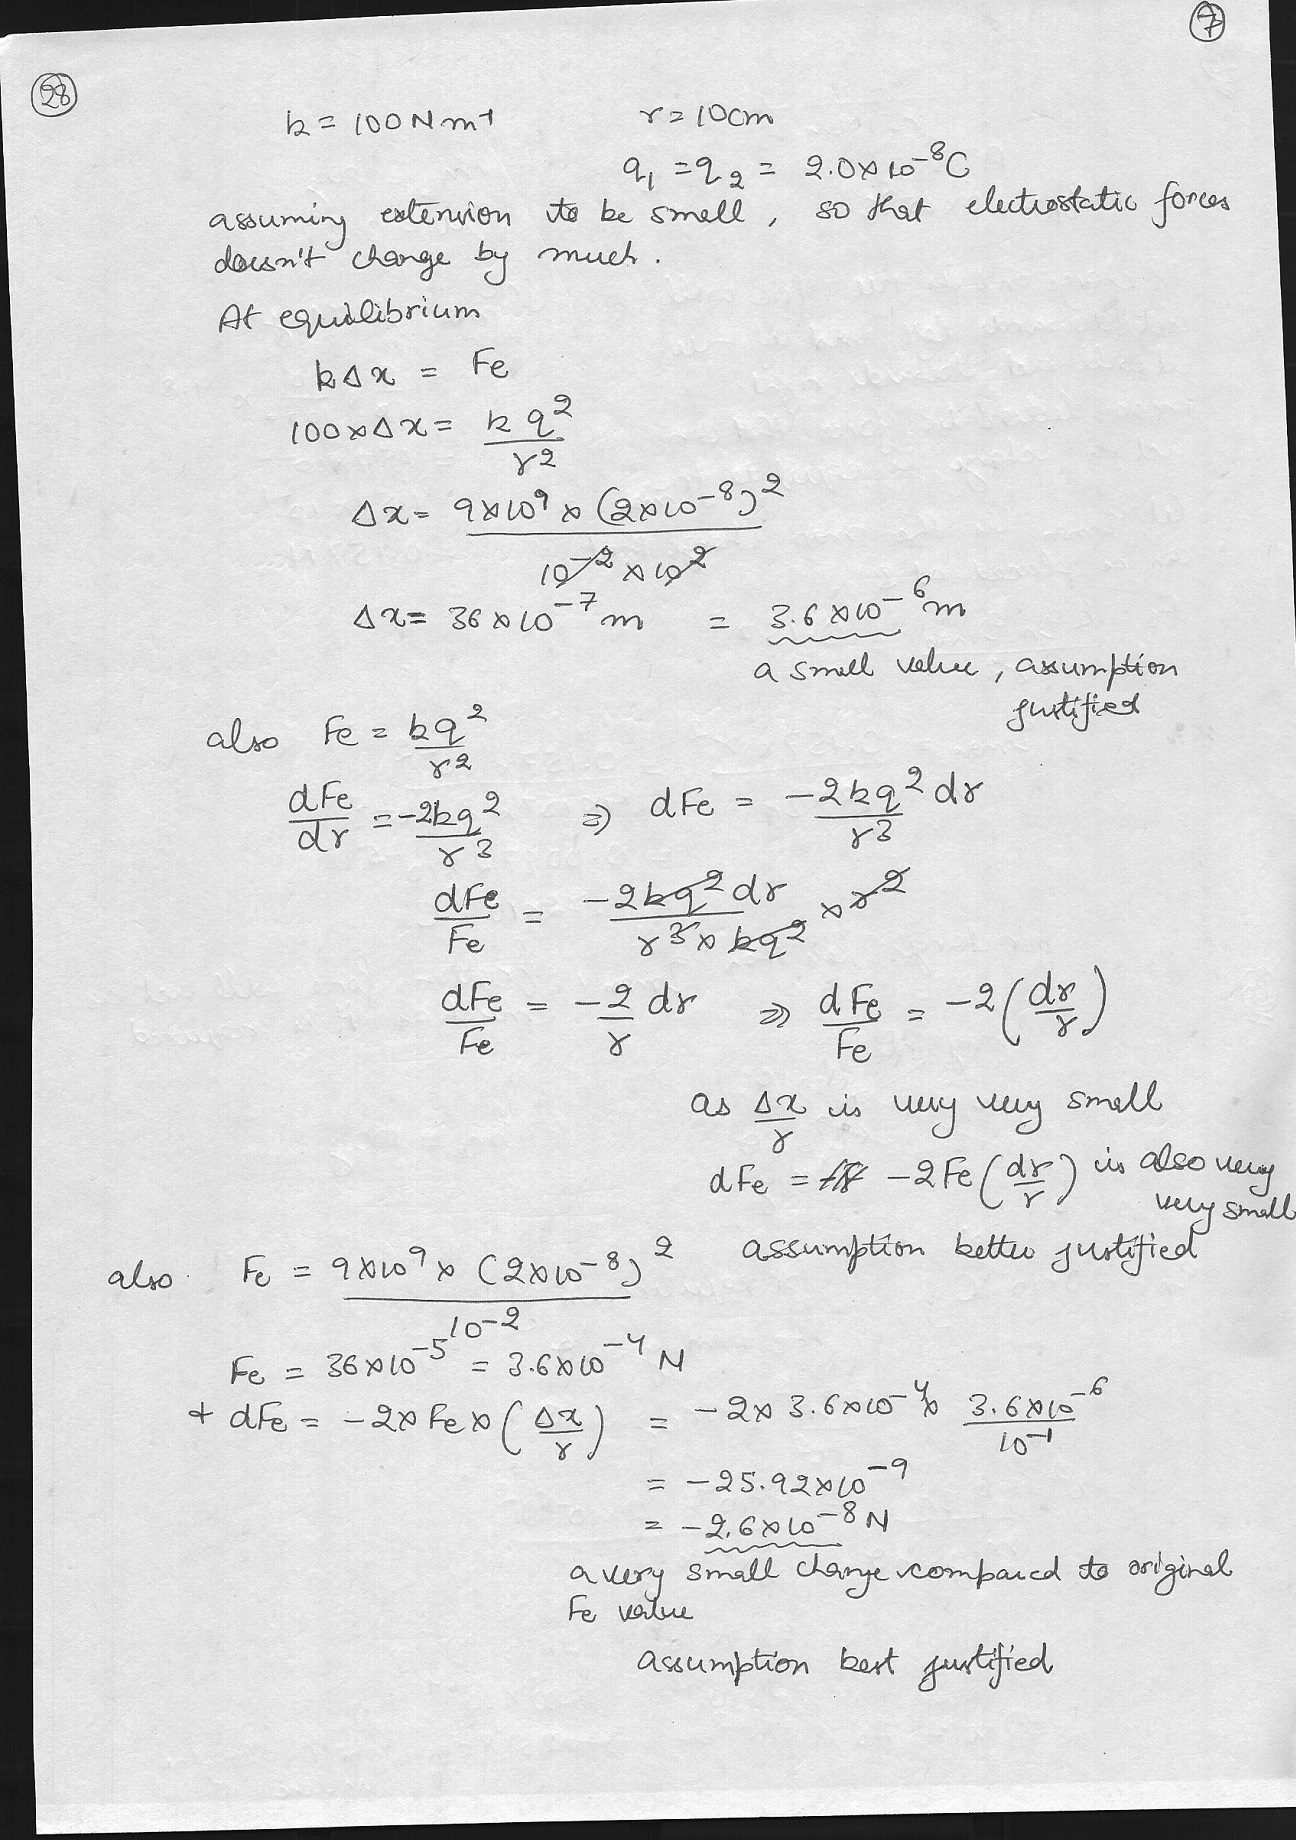 7
28
k = 100 N m⁻¹ r = 10cm
q₁ = q₂ = 2.0×10⁻⁸C
assuming extension to be small, so that electrostatic forces
doesn't change by much.
At equilibrium
kΔx = Fe
100×Δx = kq²/r²
Δx = 9×10⁹ × (2×10⁻⁸)² / 10⁻² × 10²
Δx = 36×10⁻⁷ m = 3.6×10⁻⁶ m
a small value, assumption
justified
also Fe = kq²/r²
dFe/dr = -2kq²/r³ ⇒ dFe = -2kq² dr/r³
dFe/Fe = -2kq² dr/r³×kq² × r²
dFe/Fe = -2/r dr ⇒ dFe/Fe = -2(dr/r)
as Δx/r is very very small
dFe = -2Fe(dr/r) is also very
very small
assumption better justified
also Fe = 9×10⁹ × (2×10⁻⁸)² / 10⁻²
Fe = 36×10⁻⁵ = 3.6×10⁻⁴ N
+ dFe = -2×Fe×(Δx/r) = -2× 3.6×10⁻⁴ × 3.6×10⁻⁶/10⁻¹
= -25.92×10⁻⁹
= -2.6×10⁻⁸ N
a very small change compared to original
Fe value
assumption best justified